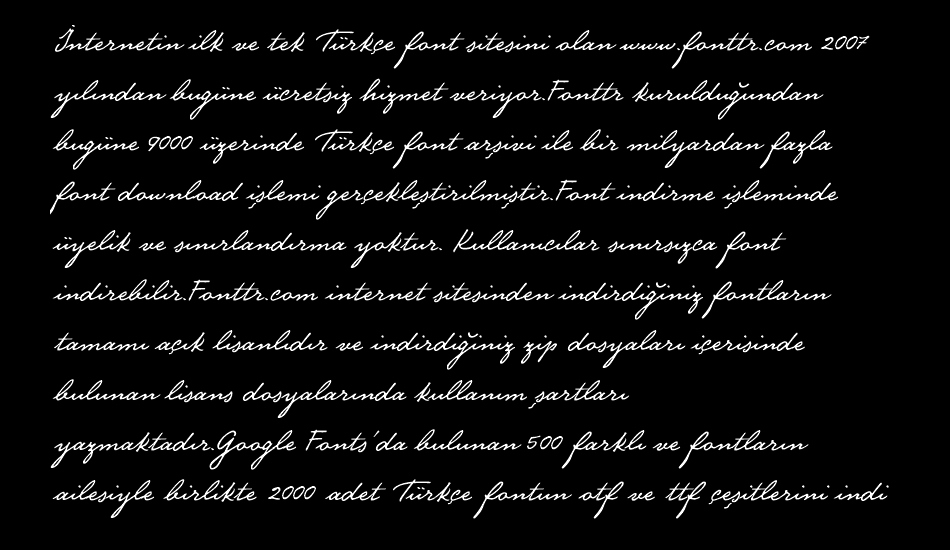 İnternetin ilk ve tek Türkçe font sitesini olan www.fonttr.com 2007
yılından bugüne ücretsiz hizmet veriyor.Fonttr kurulduğundan
bugüne 9000 üzerinde Türkçe font arşivi ile bir milyardan fazla
font download işlemi gerçekleştirilmiştir.Font indirme işleminde
üyelik ve sınırlandırma yoktur. Kullanıcılar sınırsızca font
indirebilir.Fonttr.com internet sitesinden indirdiğiniz fontların
tamamı açık lisanlıdır ve indirdiğiniz zip dosyaları içerisinde
bulunan lisans dosyalarında kullanım şartları
yazmaktadır.Google Fonts'da bulunan 500 farklı ve fontların
ailesiyle birlikte 2000 adet Türkçe fontun otf ve ttf çeşitlerini indi